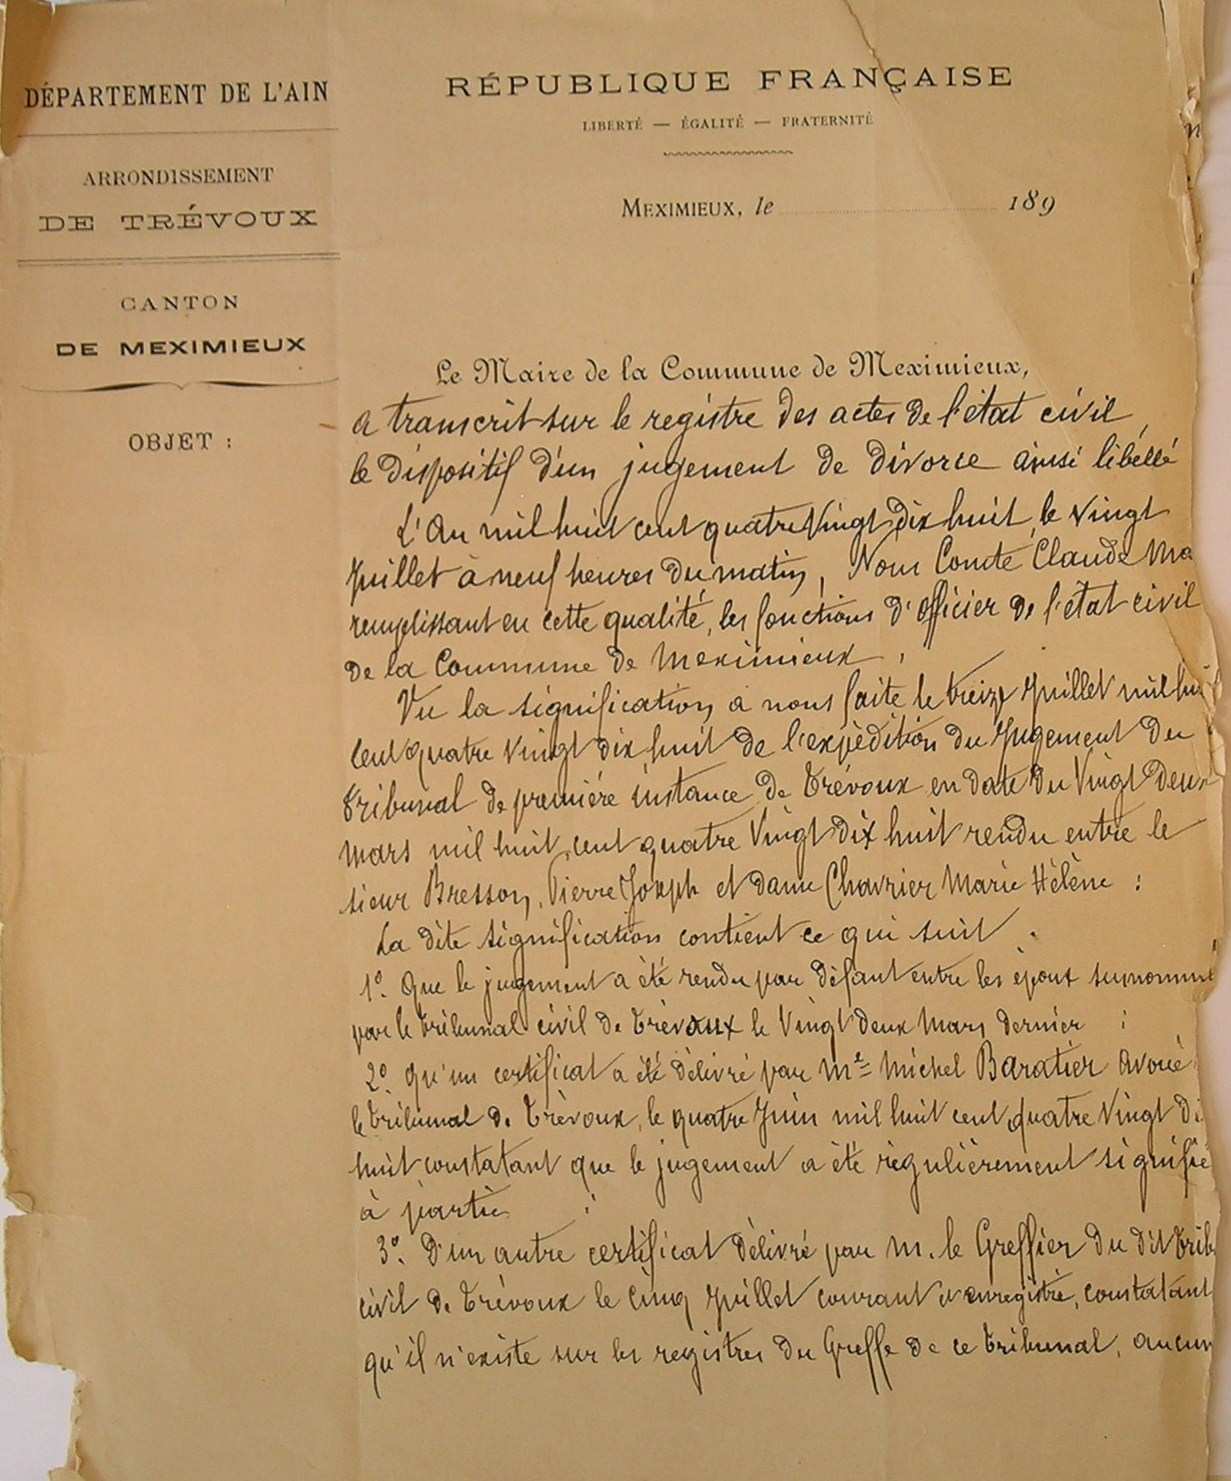 DÉPARTEMENT DE L'AIN
ARRONDISSEMENT
DE TRÉVOUX
CANTON
DE MEXIMIEUX
OBJET :
RÉPUBLIQUE FRANÇAISE
LIBERTÉ — ÉGALITÉ — FRATERNITÉ
MEXIMIEUX, le 189
Le Maire de la Commune de Meximieux,
a transcrit sur le registre des actes de l'état civil,
le dispositif d'un jugement de divorce ainsi libéllé
L'An mil huit cent quatre Vingt dix huit, le vingt
Juillet à neuf heures du matin, Nous Comte Claude Ma
remplissant en cette qualité, les fonctions d'officier de l'état civil
de la Commune de Meximieux,
Vu la signification à nous faite le treize Juillet mil hui
cent quatre vingt dix huit de l'expédition du Jugement du
tribunal de première instance de Trévoux en date du Vingt Deux
Mars mil huit cent quatre Vingt dix huit rendu entre le
sieur Bresson, Pierre Joseph et dame Chavrier Marie Hélène :
La dite signification contient ce qui suit.
1º. Que le jugement a été rendu par défaut entre les époux surnommé
par le tribunal civil de Trévoux le Vingt deux Mars dernier ;
2º. Qu'un certificat a été délivré par Me Michel Baratier Avoué
le tribunal de Trévoux, le quatre Juin mil huit cent quatre Vingt Di
huit constatant que le jugement a été régulièrement signifié
à partie ;
3º. D'un autre certificat délivré par M. le Greffier du dit trib
civil de Trévoux le cinq Juillet courant et enregistré, constatant
qu'il n'existe sur les registres du Greffe de ce tribunal, aucun